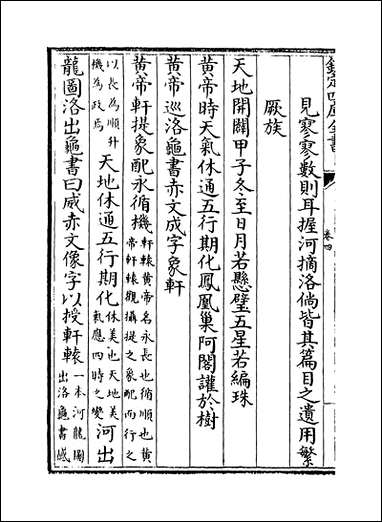 欽定四庫全書
卷四
見寥寥數則耳握河摘洛倘皆其篇目之遺用繁
厥族
天地開闢甲子冬至日月若懸璧五星若編珠
黄帝時天氣休通五行期化鳳凰巢阿閣讙於樹
黄帝巡洛龜書赤文成字象軒
黄帝軒提象配永循機軒轅黄帝名永長也循順也黄帝軒轅觀攝提之象配而行之
以長為順升機為政焉天地休通五行期化休美也天地美氣應四時之變河出
龍圖洛出龜書曰威赤文像字以授軒轅一本河龍圖出洛龜書威